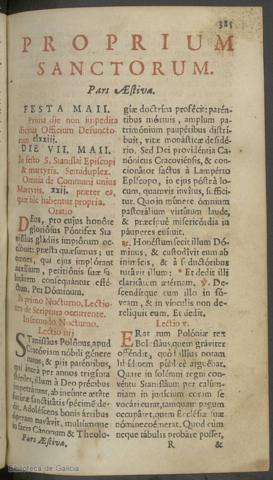 385
PROPRIUM
SANCTORUM.
Pars Æstiva.
FESTA MAII.
Prima die non impedita
dicitur Officium Defuncto-
rum clxxiij.
DIE VII. MAII.
In festo S. Stanislai Episcopi
& martyris. Semiduplex.
Omnia de Communi unius
Martyris. xxij. præter ea,
quæ hîc habentur propria.
Oratio
DEus, pro cujus honóre
gloriósus Póntifex Sta-
nislaus gládiis impiórum oc-
cúbuit: præsta quæsumus; ut
omnes, qui ejus implórant
auxílium, petitiónis suæ sa-
lutárem consequántur effé-
ctum. Per Dóminum.
In primo Nocturno, Lectio-
nes de Scriptura occurrente.
In secundo Nocturno.
Lectio iiij.
STanislaus Polónus, apud
Cracóviam nóbili génere
natus, & piis paréntibus,
qui ántea per annos triginta
stériles, illum à Deo précibus
impetrárant, ab ineúnte
Adolescens bonis ártibus
óperam navávit, multúmque
in sacra Canonum & Theolo-
Pars Æstiva.
giæ doctrína profécit: parén-
tibus mórtuis, amplum pa-
trimónium paupéribus distrí-
buit, vitæ monásticæ desidé-
rio. Sed Dei providéntia Ca-
nónicus Cracoviénsis, & con-
cionátor factus à Lampérto
Epíscopo, in ejus póstea lo-
cum, quamvis invítus, suffíci-
tur. Quo in múnere ómnium
pastorálium virtútum laude,
& præcípuè misericórdia in
páuperes enítuit.
℟. Honéstum fecit illum Dó-
minus, & custodívit eum ab
inimícis, & à seductóribus
tutávit illum: * Et dedit illi
claritátem ætérnam. ℣. De-
scendítque cum illo in fó-
veam, & in vínculis non de-
relíquit eum. Et dedit.
Lectio v.
ERat tum Polóniæ rex
Bolesláus, quem gráviter
offéndit, quod illíus notam
libídinem públicè arguébat.
Quare in solémni regni con-
véntu Stanisláum per calúm-
niam in judícium coram se
vocári curat, tamquam pagum
occupárit, quem Ecclésiæ suæ
nómine coémerat. Quod cùm
neque tábulis probáre posset,
R &
Biblioteca de Galicia